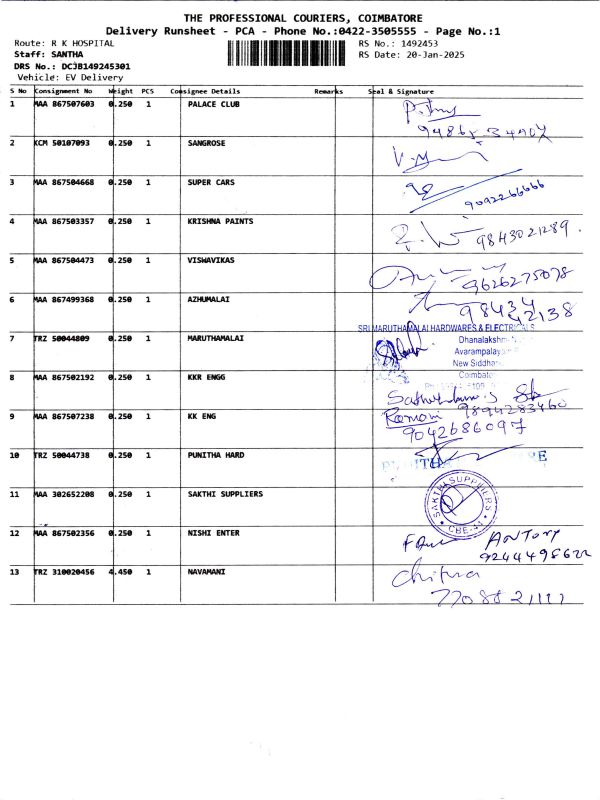 THE PROFESSIONAL COURIERS, COIMBATORE
Delivery Runsheet - PCA - Phone No.:0422-3505555 - Page No.:1
Route: R K HOSPITAL
RS No.: 1492453
Staff: SANTHA
RS Date: 20-Jan-2025
DRS No.: DCJB149245301
Vehicle: EV Delivery
S No Consignment No Weight PCS Consignee Details Remarks Seal & Signature
1 MAA 867507603 0.250 1 PALACE CLUB
2 KCM 50107093 0.250 1 SANGROSE
3 MAA 867504668 0.250 1 SUPER CARS
9092266666
4 MAA 867503357 0.250 1 KRISHNA PAINTS
9843021289.
5 MAA 867504473 0.250 1 VISWAVIKAS
9626275078
6 MAA 867499368 0.250 1 AZHUMALAI
98434
42138
SRI MARUTHAMALAI HARDWARES & ELECTRICALS
7 TRZ 50044809 0.250 1 MARUTHAMALAI
Dhanalakshmi
Avarampalayam
New Siddha
Coimbato
8 MAA 867502192 0.250 1 KKR ENGG
9894283460
9 MAA 867507238 0.250 1 KK ENG
Ramani
9042686097
10 TRZ 50044738 0.250 1 PUNITHA HARD
11 MAA 302652208 0.250 1 SAKTHI SUPPLIERS
SAKTHI SUPPLIERS
CBE-41
12 MAA 867502356 0.250 1 NISHI ENTER
ANTONY
9244498622
13 TRZ 310020456 4.450 1 NAVAMANI
Chitra